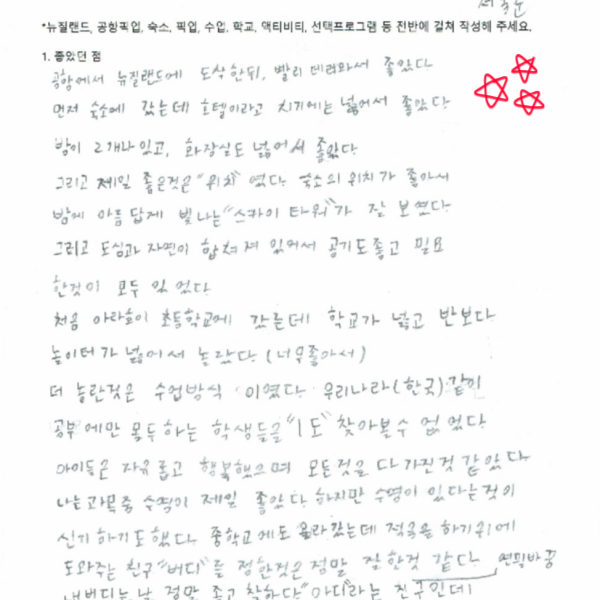 *뉴질랜드, 공항픽업, 숙소, 픽업, 수업, 학교, 액티비티, 선택프로그램 등 전반에 걸쳐 작성해 주세요.
1. 좋았던 점
공항에서 뉴질랜드에 도착한뒤, 빨리 데려와서 좋았다
먼저 숙소에 갔는데 호텔이라고 치기에는 넓어서 좋았다
방이 2개나 있고, 화장실도 넓어서 좋았다
그리고 제일 좋은것은 "위치" 였다 숙소의 위치가 좋아서
밤에 아름답게 빛나는 "스카이 타워"가 잘 보였다
그리고 도심과 자연이 합쳐져 있어서 공기도좋고 필요
한것이 모두 있었다
처음 초등학교에 갔는데 학교가 넓고 반보다
놀이터가 넓어서 놀랐다 (너무좋아서)
더 놀란것은 수업방식 이였다 우리나라(한국)같이
공부에만 몰두하는 학생들을 "1도" 찾아볼수 없었다
아이들은 자유롭고 행복했으며 모든것을 다 가진것 같았다
나는 과목중 수학이 제일 좋았다 하지만 수영이 있다는것이
신기하기도 했다 중학교에도 올라갔는데 적응을 하기위에
도와주는 친구 "버디"를 정한것은 정말 잘한것 같다
내버디는 날 정말 좋고 착하다 친구인데